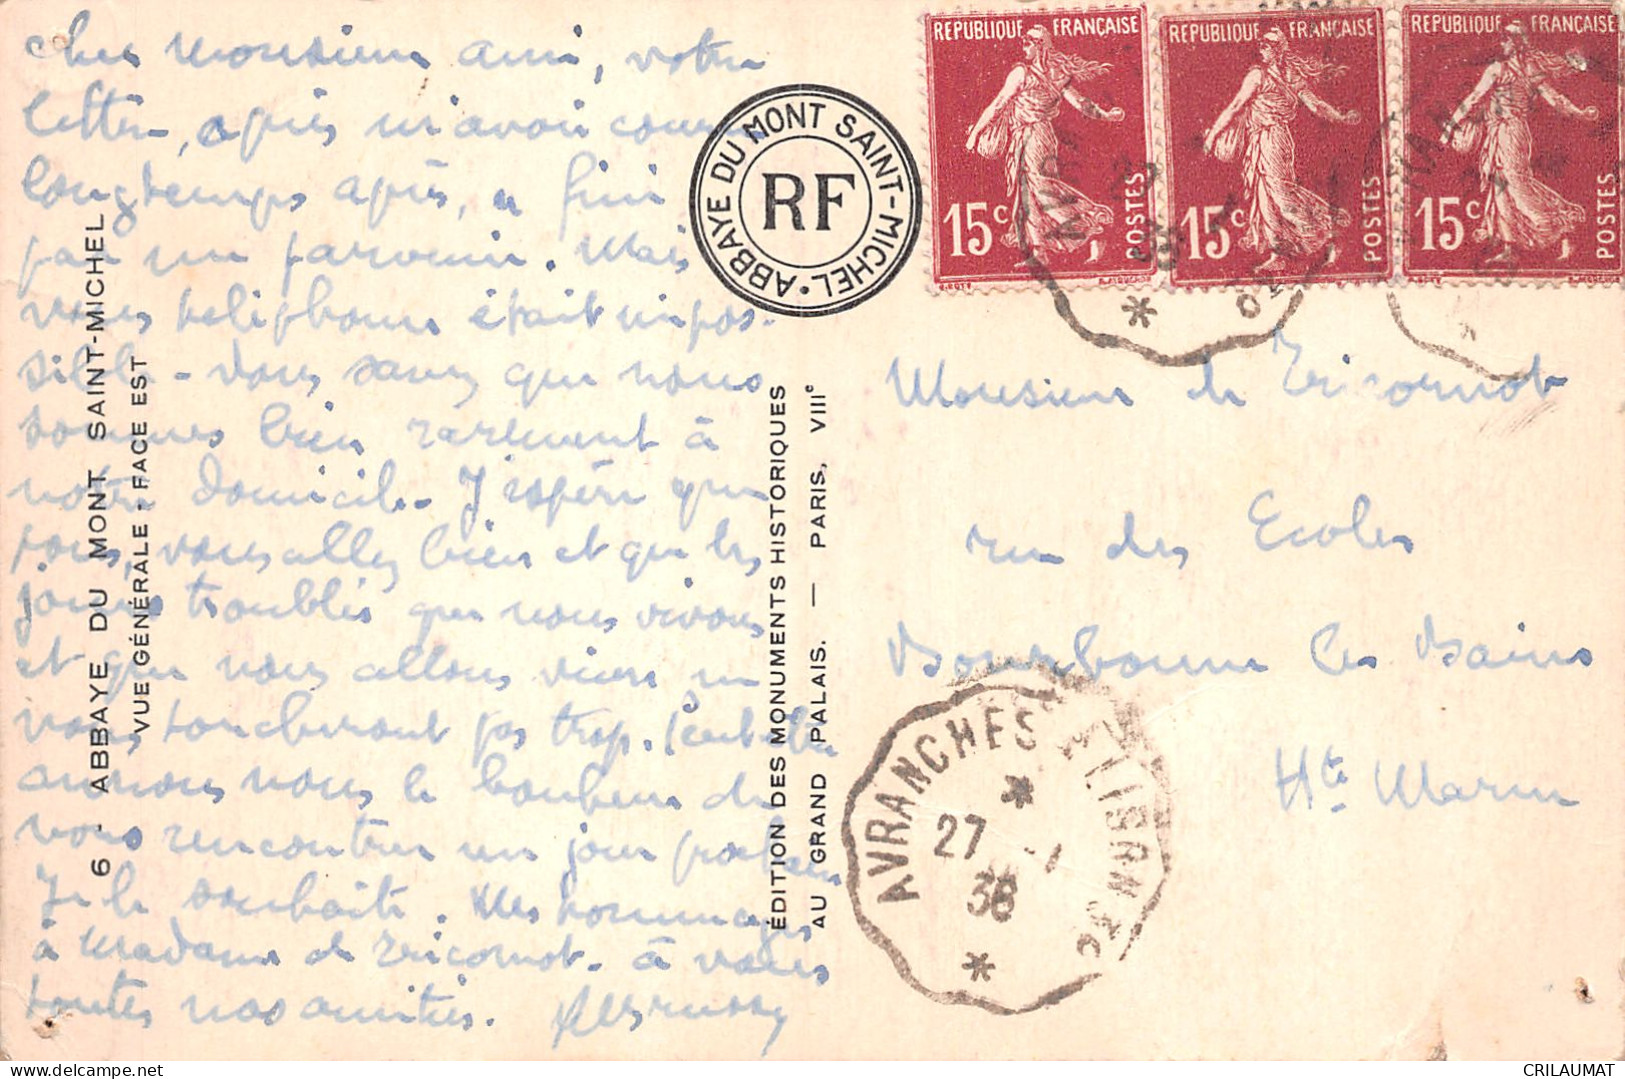 cher Monsieur ami, votre
lettre, après m'avoir couru
longtemps après, a fini
par me parvenir. Mais
vous téléphoner était impos-
sible - Vous savez que nous
sommes bien rarement à
notre domicile - J'espère que
tous, vous allez bien et que les
jours troublés que nous vivons
et que nous allons vivre ne
vous toucheront pas trop. Peut-être
aurons nous le bonheur de
vous rencontrer un jour prochain
Je le souhaite. Mes hommages
à Madame de Tricornot - à vous
toutes nos amitiés.
6 - ABBAYE DU MONT SAINT-MICHEL
VUE GÉNÉRALE - FACE EST
ABBAYE DU MONT SAINT-MICHEL
RF
ÉDITION DES MONUMENTS HISTORIQUES
AU GRAND PALAIS. — PARIS, VIIIe
REPUBLIQUE FRANÇAISE
15c POSTES
REPUBLIQUE FRANÇAISE
15c POSTES
REPUBLIQUE FRANÇAISE
15c POSTES
Monsieur de Tricornot
rue des Ecoles
Bourbonne les Bains
Hte Marne
AVRANCHES
27 -1
38
CRILAUMAT